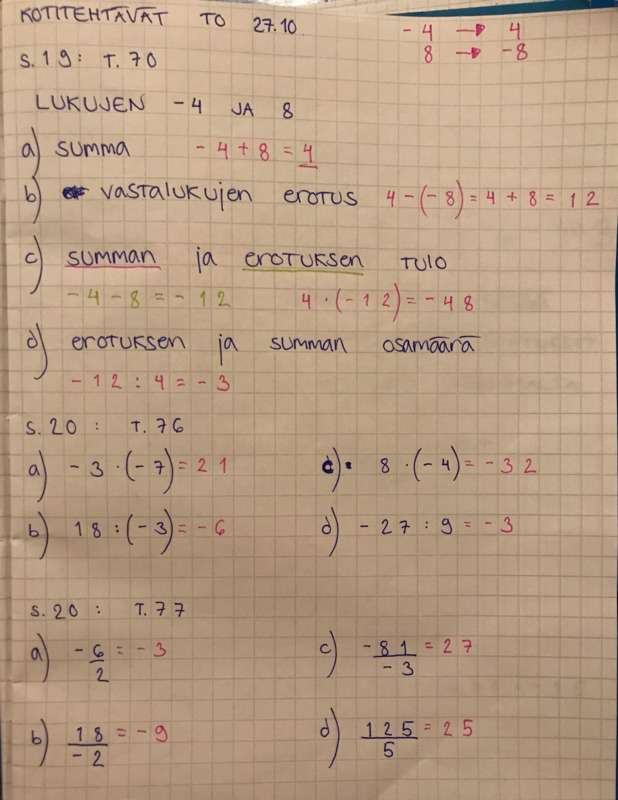 KOTITEHTÄVÄT TO 27.10.
-4 → 4
8 → -8
s. 19: T. 70
LUKUJEN -4 JA 8
a) SUMMA -4+8=4
b) VASTALUKUJEN EROTUS 4-(-8)=4+8=12
c) SUMMAN ja EROTUKSEN TULO
-4-8=-12 4·(-12)=-48
d) EROTUKSEN ja SUMMAN OSAMÄÄRÄ
-12:4=-3
s. 20: T. 76
a) -3·(-7)=21 c) 8·(-4)=-32
b) 18:(-3)=-6 d) -27:9=-3
s. 20: T. 77
a) -6/2=-3 c) -81/-3=27
b) 18/-2=-9 d) 125/5=25